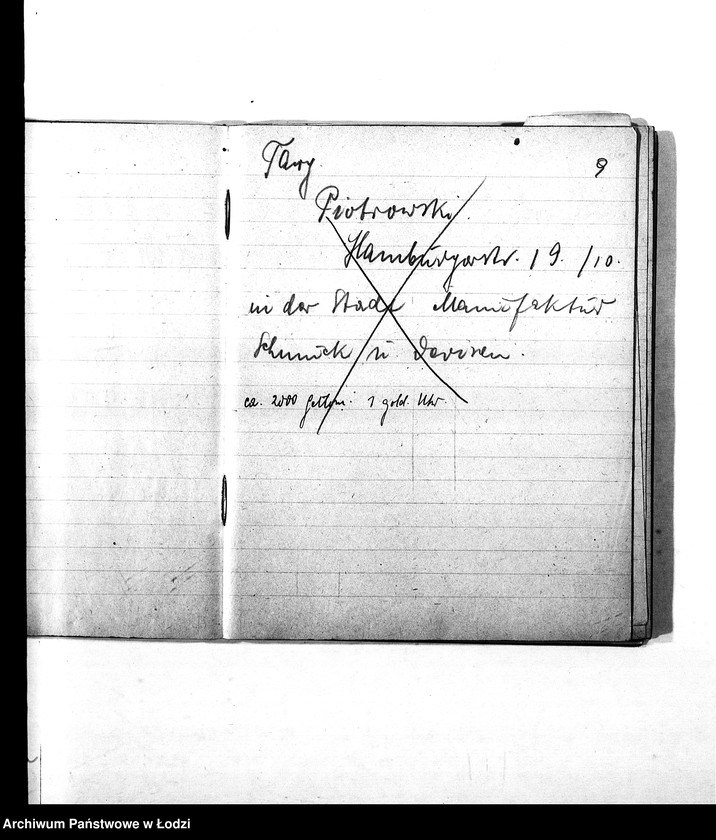 9
Piotrowski.
Hamburgerstr. 19. /10.
in der Stadt Manufaktur
Schmuck u. Devisen.
ca. 2000 1 gold. Uhr.
Archiwum Państwowe w Łodzi